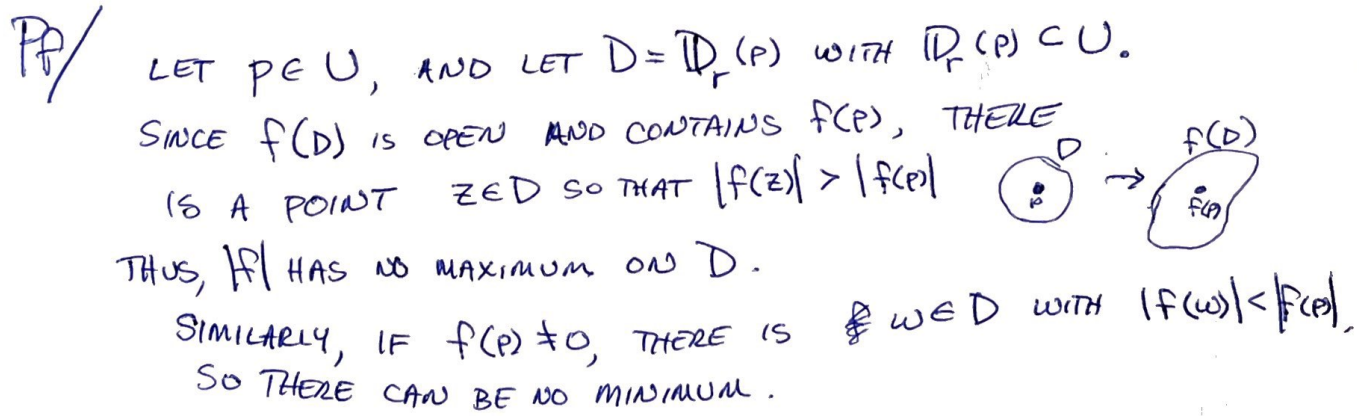 Pf/ LET p∈U, AND LET D=𝔻_r(p) WITH 𝔻_r(p)⊂U.
SINCE f(D) IS OPEN AND CONTAINS f(p), THERE
IS A POINT z∈D SO THAT |f(z)| > |f(p)|
D → f(D)
p f(p)
THUS, |f| HAS NO MAXIMUM ON D.
SIMILARLY, IF f(p)≠0, THERE IS w∈D WITH |f(w)|<|f(p)|,
SO THERE CAN BE NO MINIMUM.